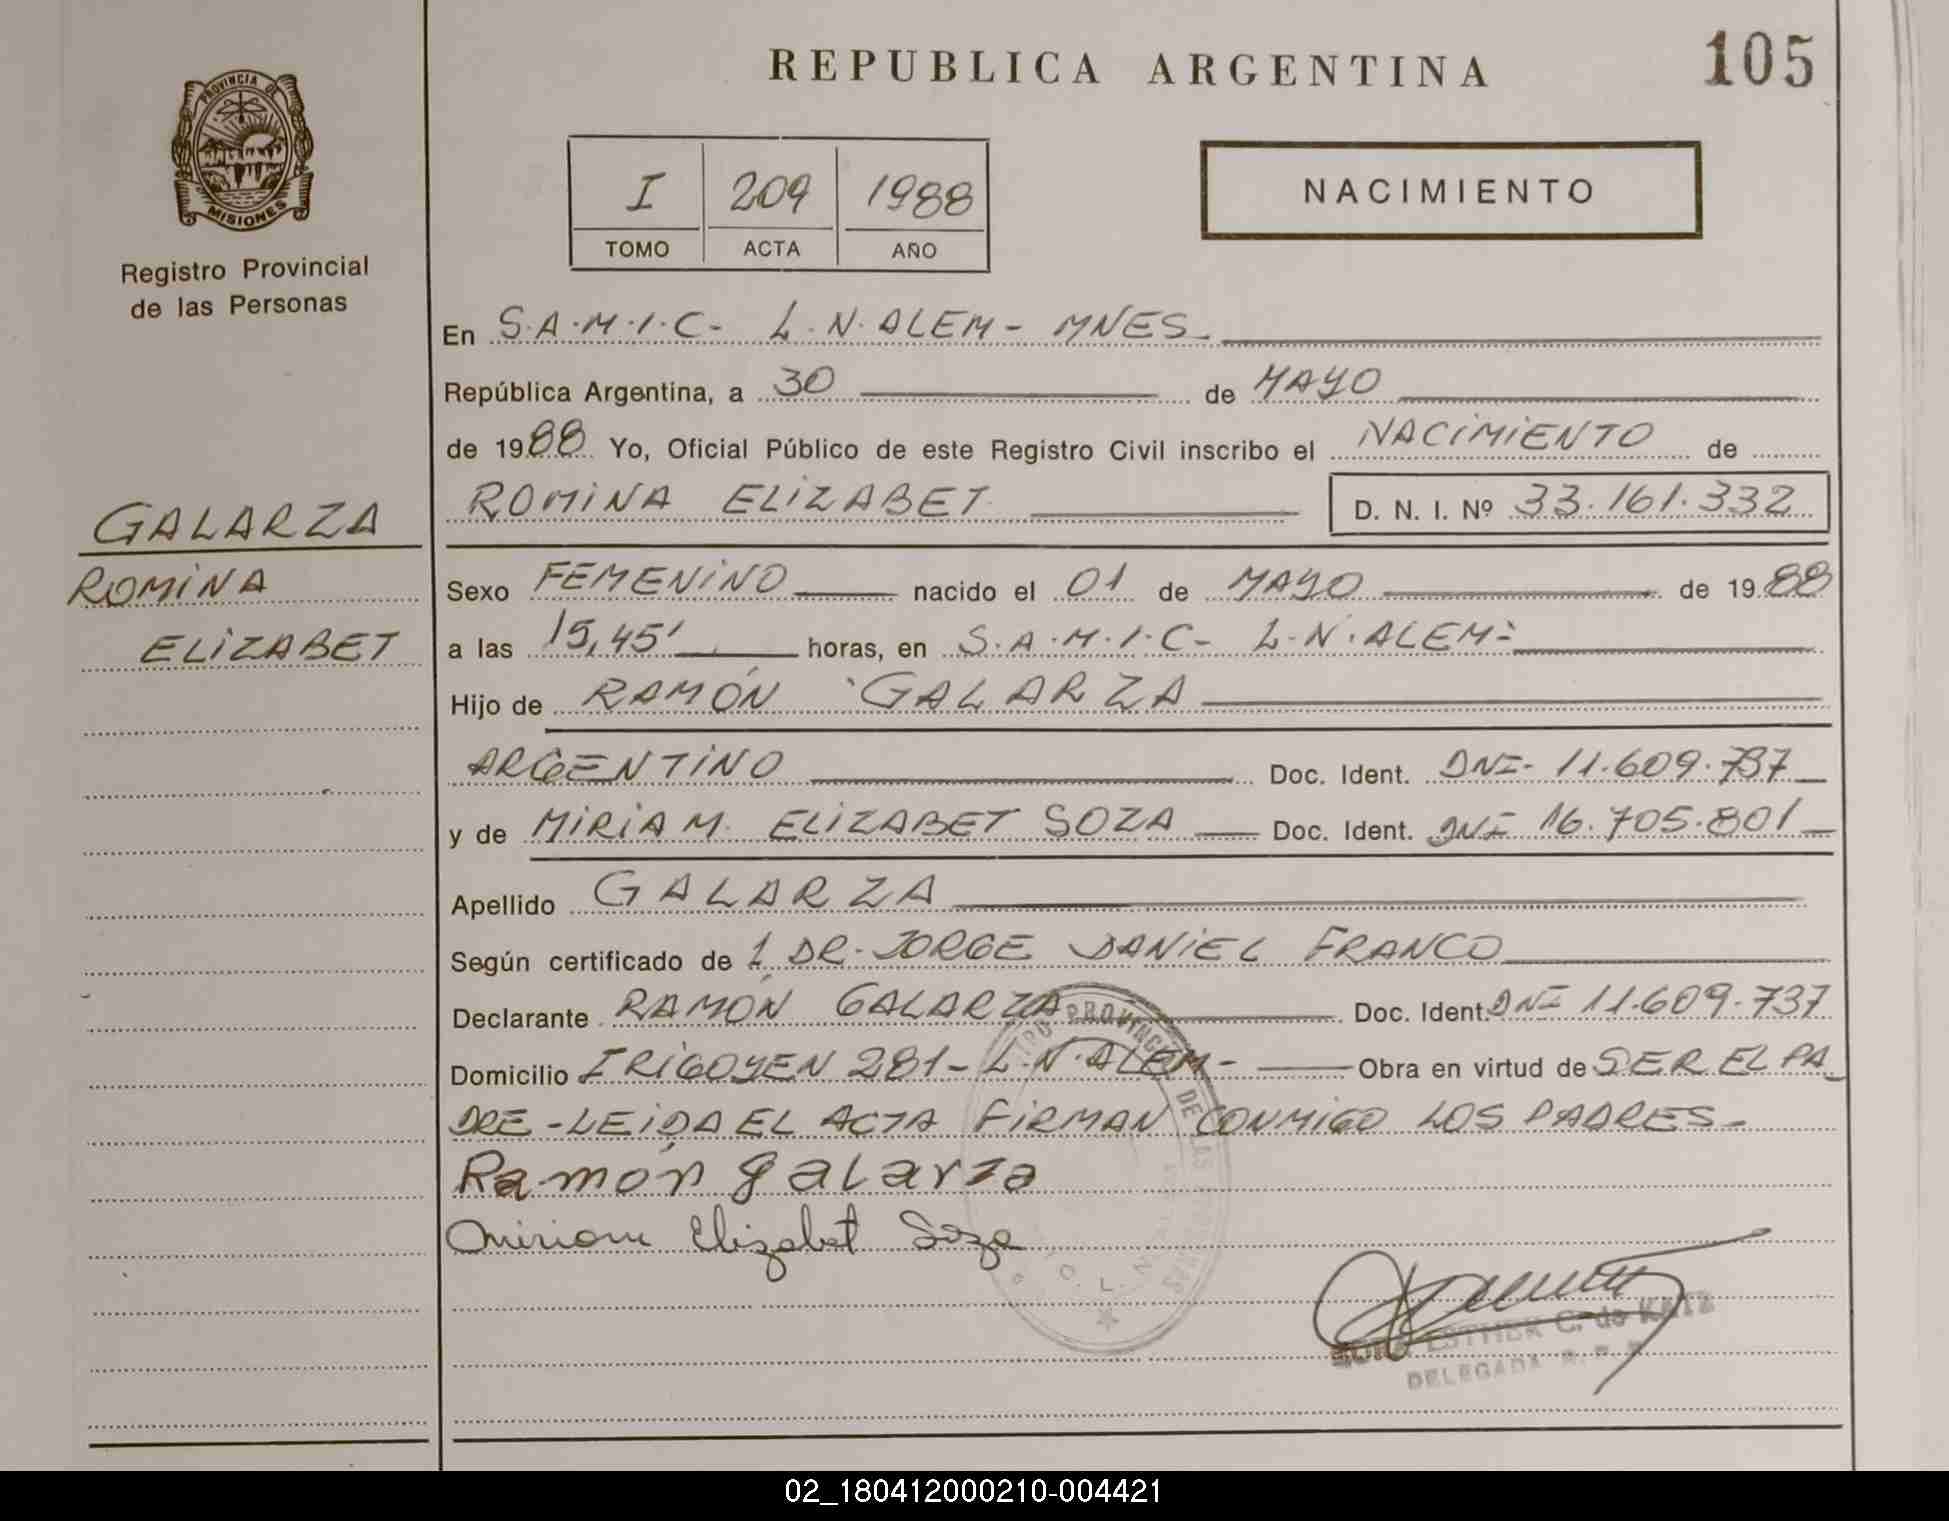 REPUBLICA ARGENTINA
105
PROVINCIA DE
MISIONES
Registro Provincial
de las Personas
I 209 1988
TOMO ACTA AÑO
NACIMIENTO
En S.A.M.I.C- L.N.ALEM- MNES-
República Argentina, a 30 de MAYO
de 1988 Yo, Oficial Público de este Registro Civil inscribo el NACIMIENTO de
ROMINA ELIZABET D. N. I. Nº 33.161.332
GALARZA
ROMINA
ELIZABET
Sexo FEMENINO nacido el 01 de MAYO de 1988
a las 15,45' horas, en S.A.M.I.C- L.N.ALEM-
Hijo de RAMÓN GALARZA
ARGENTINO Doc. Ident. DNI- 11.609.737
y de MIRIAM ELIZABET SOZA Doc. Ident. DNI 16.705.801
Apellido GALARZA
Según certificado de 1, DR. JORGE DANIEL FRANCO
Declarante RAMÓN GALARZA Doc. Ident. DNI 11.609.737
Domicilio IRIGOYEN 281- L.N.ALEM- Obra en virtud de SER EL PA_
DRE-LEIDA EL ACTA FIRMAN CONMIGO LOS PADRES-
Ramón galarza
Miriam Elizabet Soza
ESTHER C. de KATZ
DELEGADA
02_180412000210-004421